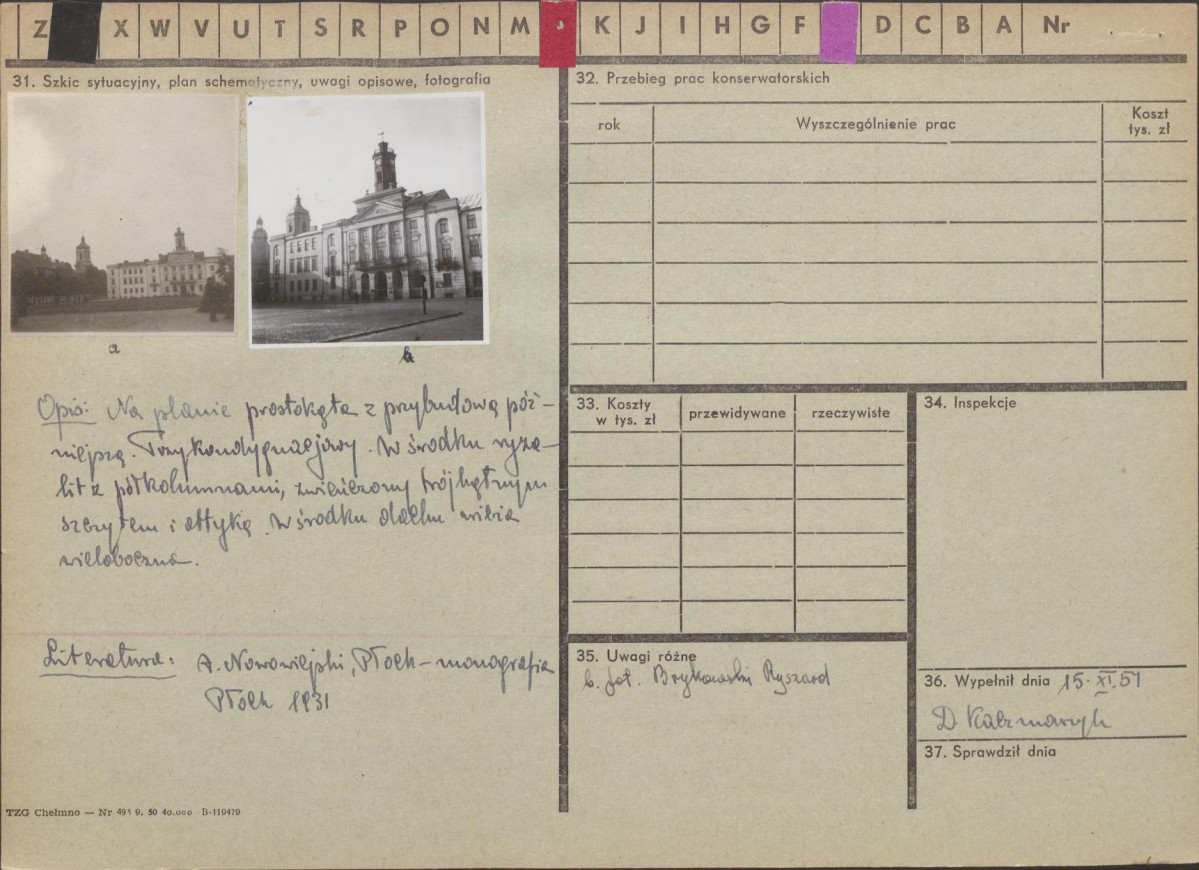 Z X W V U T S R P O N M K J I H G F D C B A Nr
31. Szkic sytuacyjny, plan schematyczny, uwagi opisowe, fotografia
a
b
Opis: Na planie prostokąta z przybudową póź-
niejszą. Trzykondygnacjowy. W środku ryza-
lit z półkolumnami, zwieńczony trójkątnym
szczytem i attyką. W środku dachu wieża
wieloboczna.
Literatura: A. Nowowiejski, Płock - monografia
Płock 1931
TZG Chełmno — Nr 495 9. 50 40.000 B-119479
32. Przebieg prac konserwatorskich
rok
Wyszczególnienie prac
Koszt
tys. zł
33. Koszty
w tys. zł
przewidywane
rzeczywiste
34. Inspekcje
35. Uwagi różne
b. fot. Brykowski Ryszard
36. Wypełnił dnia 15.XI.51
D Kaczmarzyk
37. Sprawdził dnia